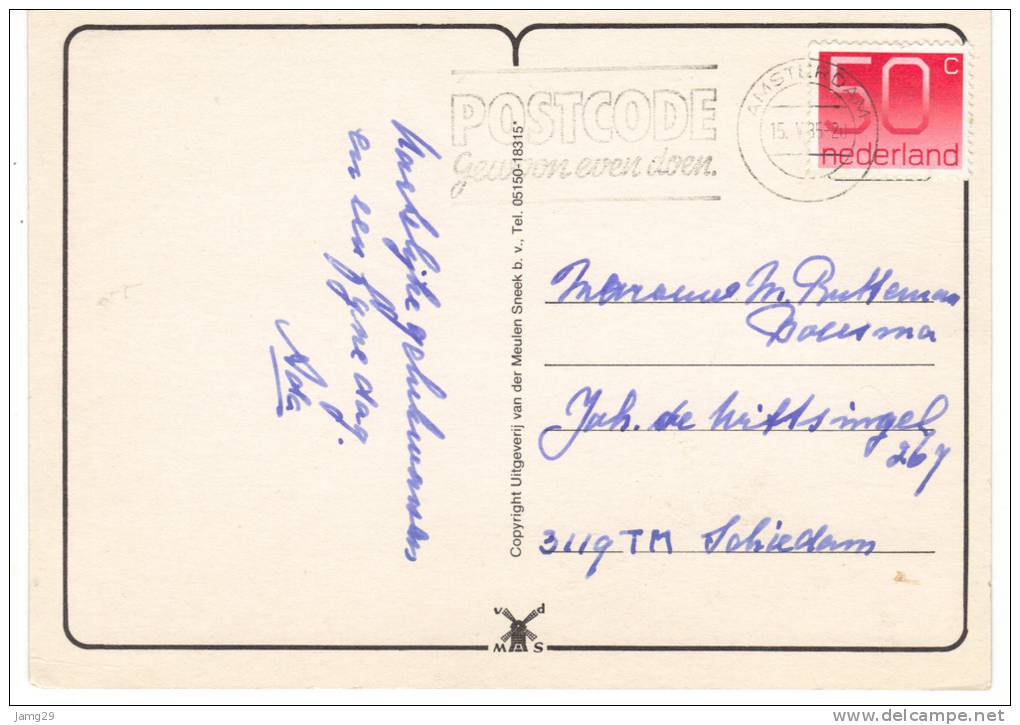 50 c
nederland
AMSTERDAM
15. V 85-20
POSTCODE
gewoon even doen.
Hartelijke gelukwensen
en een fijne dag.
Ada
Copyright Uitgeverij van der Meulen Sneek b. v., Tel. 05150-18315*
Mevrouw M. Rutteman
Boersma
Joh. de Wittsingel
267
3119 TM Schiedam
v d
M A S
jamg29
www.delcampe.net